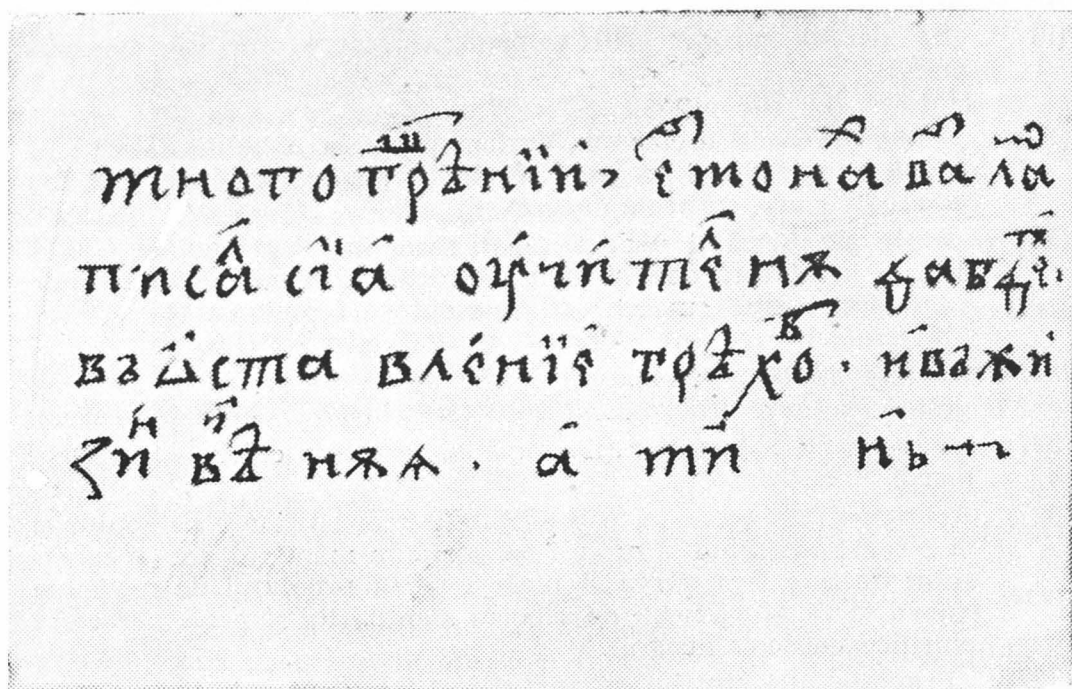 многогрѣшнїи, ермонах варлаам
писах сїа оучителнѫ
въѡставленїе грѣховъ. и въжи
знь вѣчнѫѧ. а ми нь